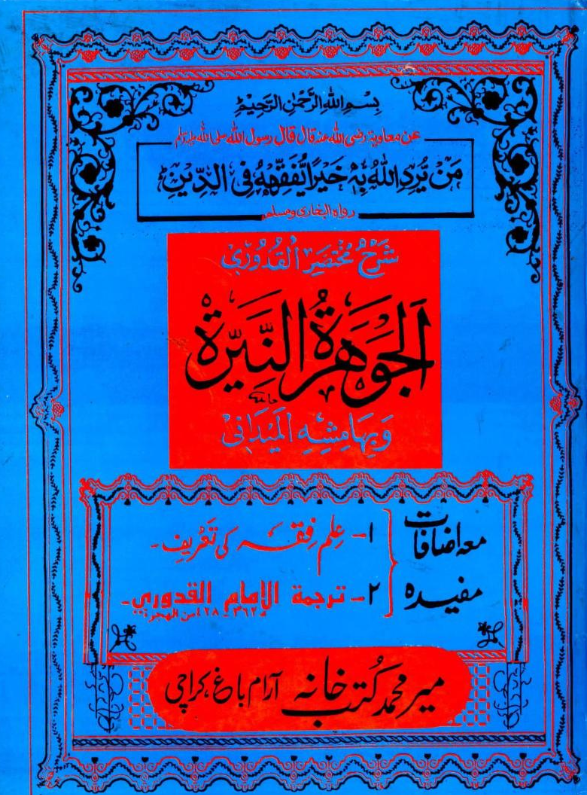 بسم الله الرحمن الرحيم
عن معاوية رضی الله عنه قال قال رسول الله صلی الله علیه وسلم
مَنْ يُرِدِ اللهُ بِهٖ خَيْرًا يُفَقِّهْهُ فِی الدِّيْنِ
رواه البخاری ومسلم
شَرْحُ مُخْتَصَرِ الْقُدُوْرِي
اَلْجَوْهَرَةُ النَّيِّرَةُ
وَبِهَامِشِهِ الْمَيْدَانِی
معہ اضافات
مفیدہ
۱- عِلمِ فِقہ کی تَعْرِیف -
۲- ترجمة الإمام القدوري -
میر محمد کتب خانہ آرام باغ، کراچی